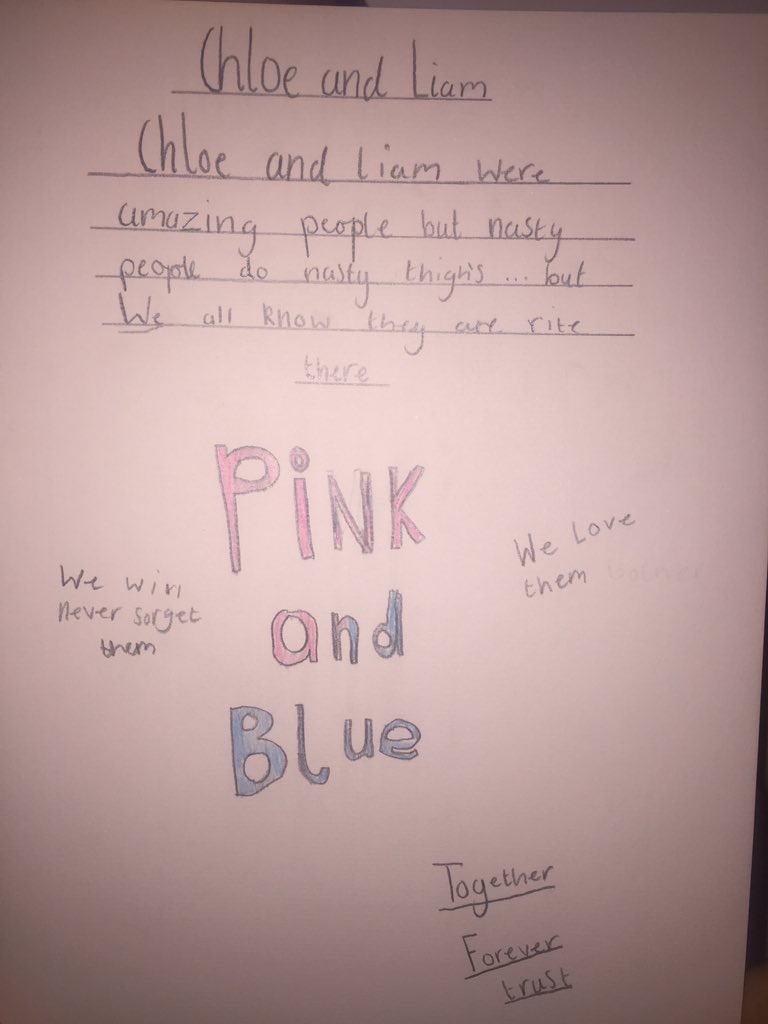 Chloe and Liam
Chloe and Liam were
amazing people but nasty
people do nasty thighs ... but
We all know they are rite
there
PiNK
and
BLue
We Love
them
We will
never forget
them
Together
Forever
trust